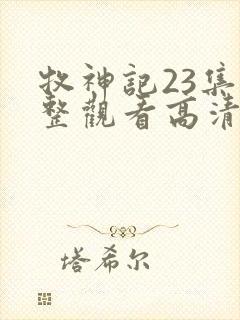 牧神記23集
整觀看高清
塔希尔